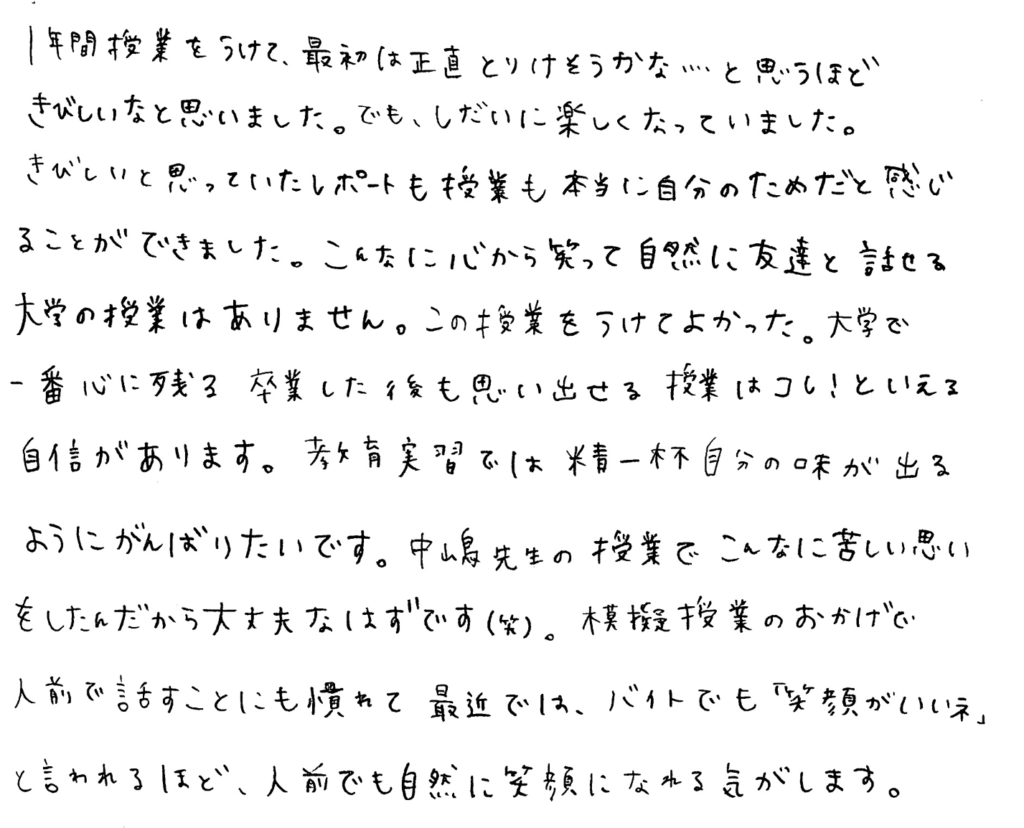 1年間授業をうけて、最初は正直とりけそうかな…と思うほど
きびしいなと思いました。でも、しだいに楽しくなっていました。
きびしいと思っていたレポートも授業も本当に自分のためだと感じ
ることができました。こんなに心から笑って自然に友達と話せる
大学の授業はありません。この授業をうけてよかった。大学で
一番心に残る卒業した後も思い出せる授業はコレ!といえる
自信があります。教育実習では精一杯自分の味が出る
ようにがんばりたいです。中嶋先生の授業でこんなに苦しい思い
をしたんだから大丈夫なはずです(笑)。模擬授業のおかげで
人前で話すことにも慣れて最近では、バイトでも「笑顔がいいネ」
と言われるほど、人前でも自然に笑顔になれる気がします。